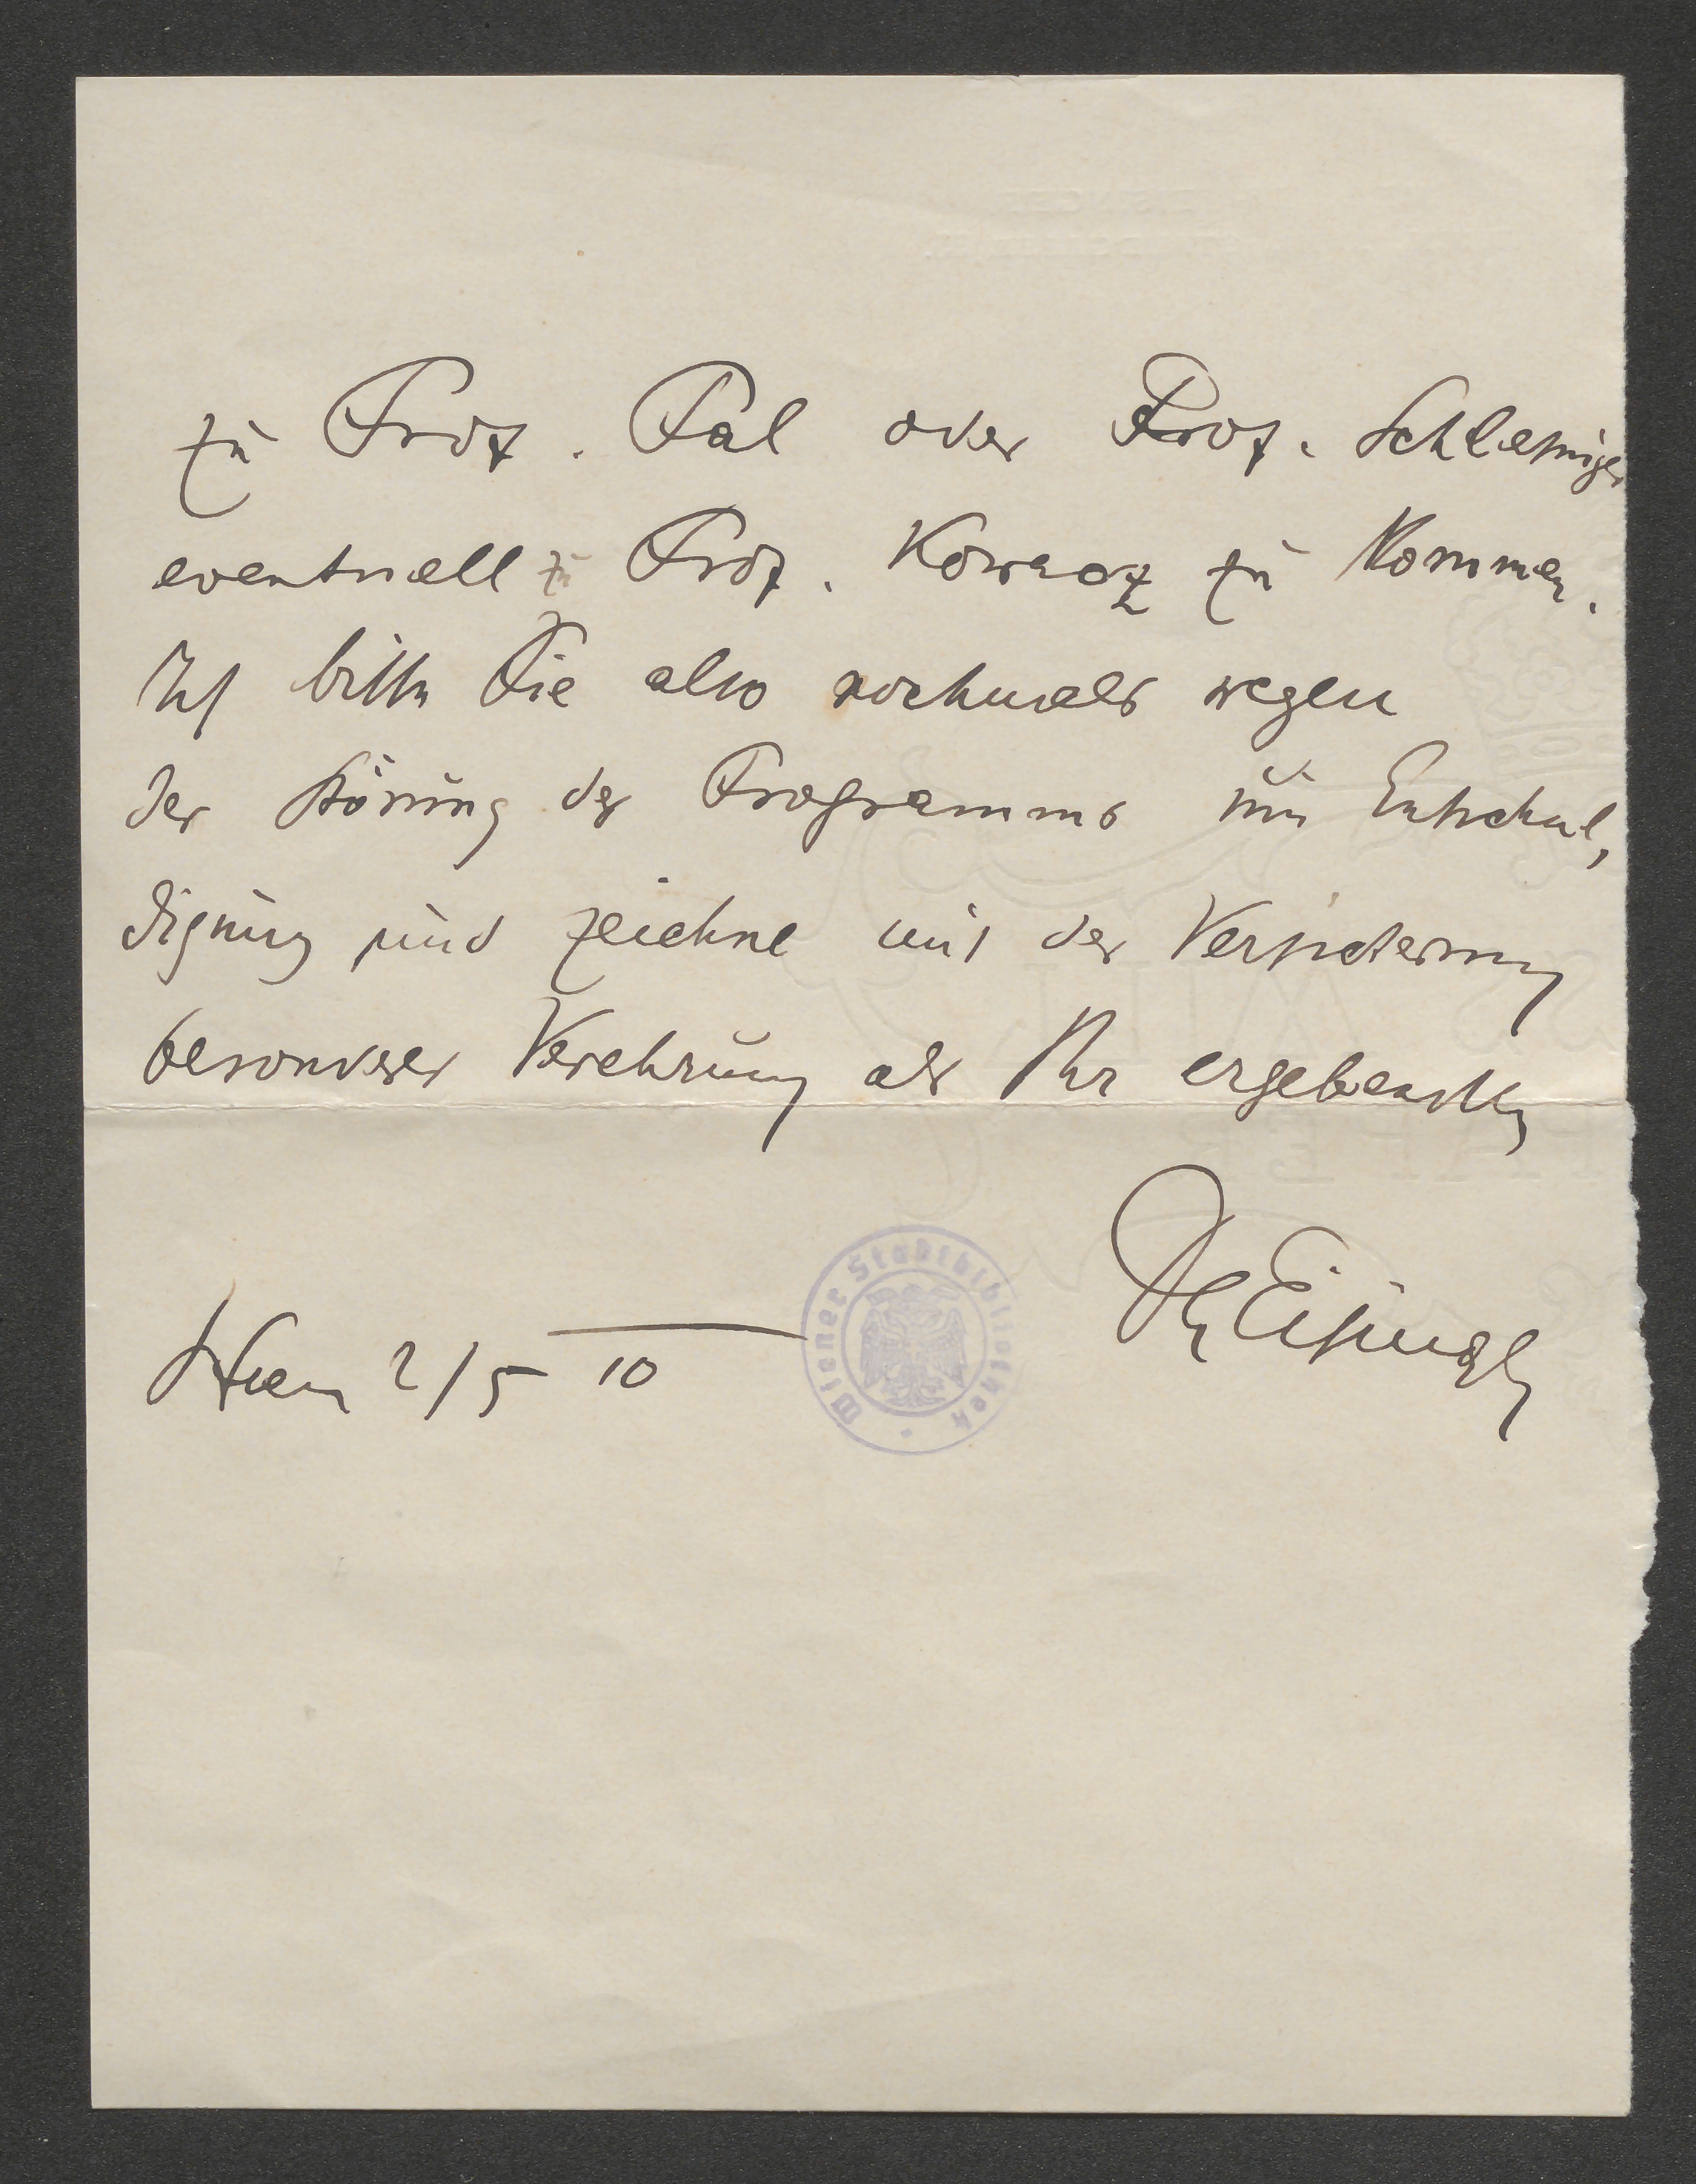 zu Prof. Pal oder Prof. Schlesinger
eventuell zu Prof. Kovacz zu kommen.
Ich bitte Sie also nochmals wegen
der Störung des Programms um Entschul,
digung und zeichne mit der Versicherung
besonderer Verehrung als Ihr ergebenster
Wien 2/5 10
Wiener Stadtbibliothek